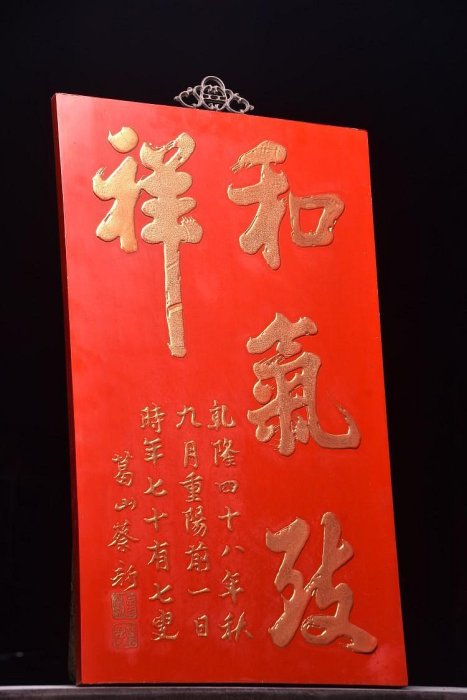 和氣致
祥
乾隆四十八年秋
九月重陽前一日
時年七十有七叟
葛山蔡新